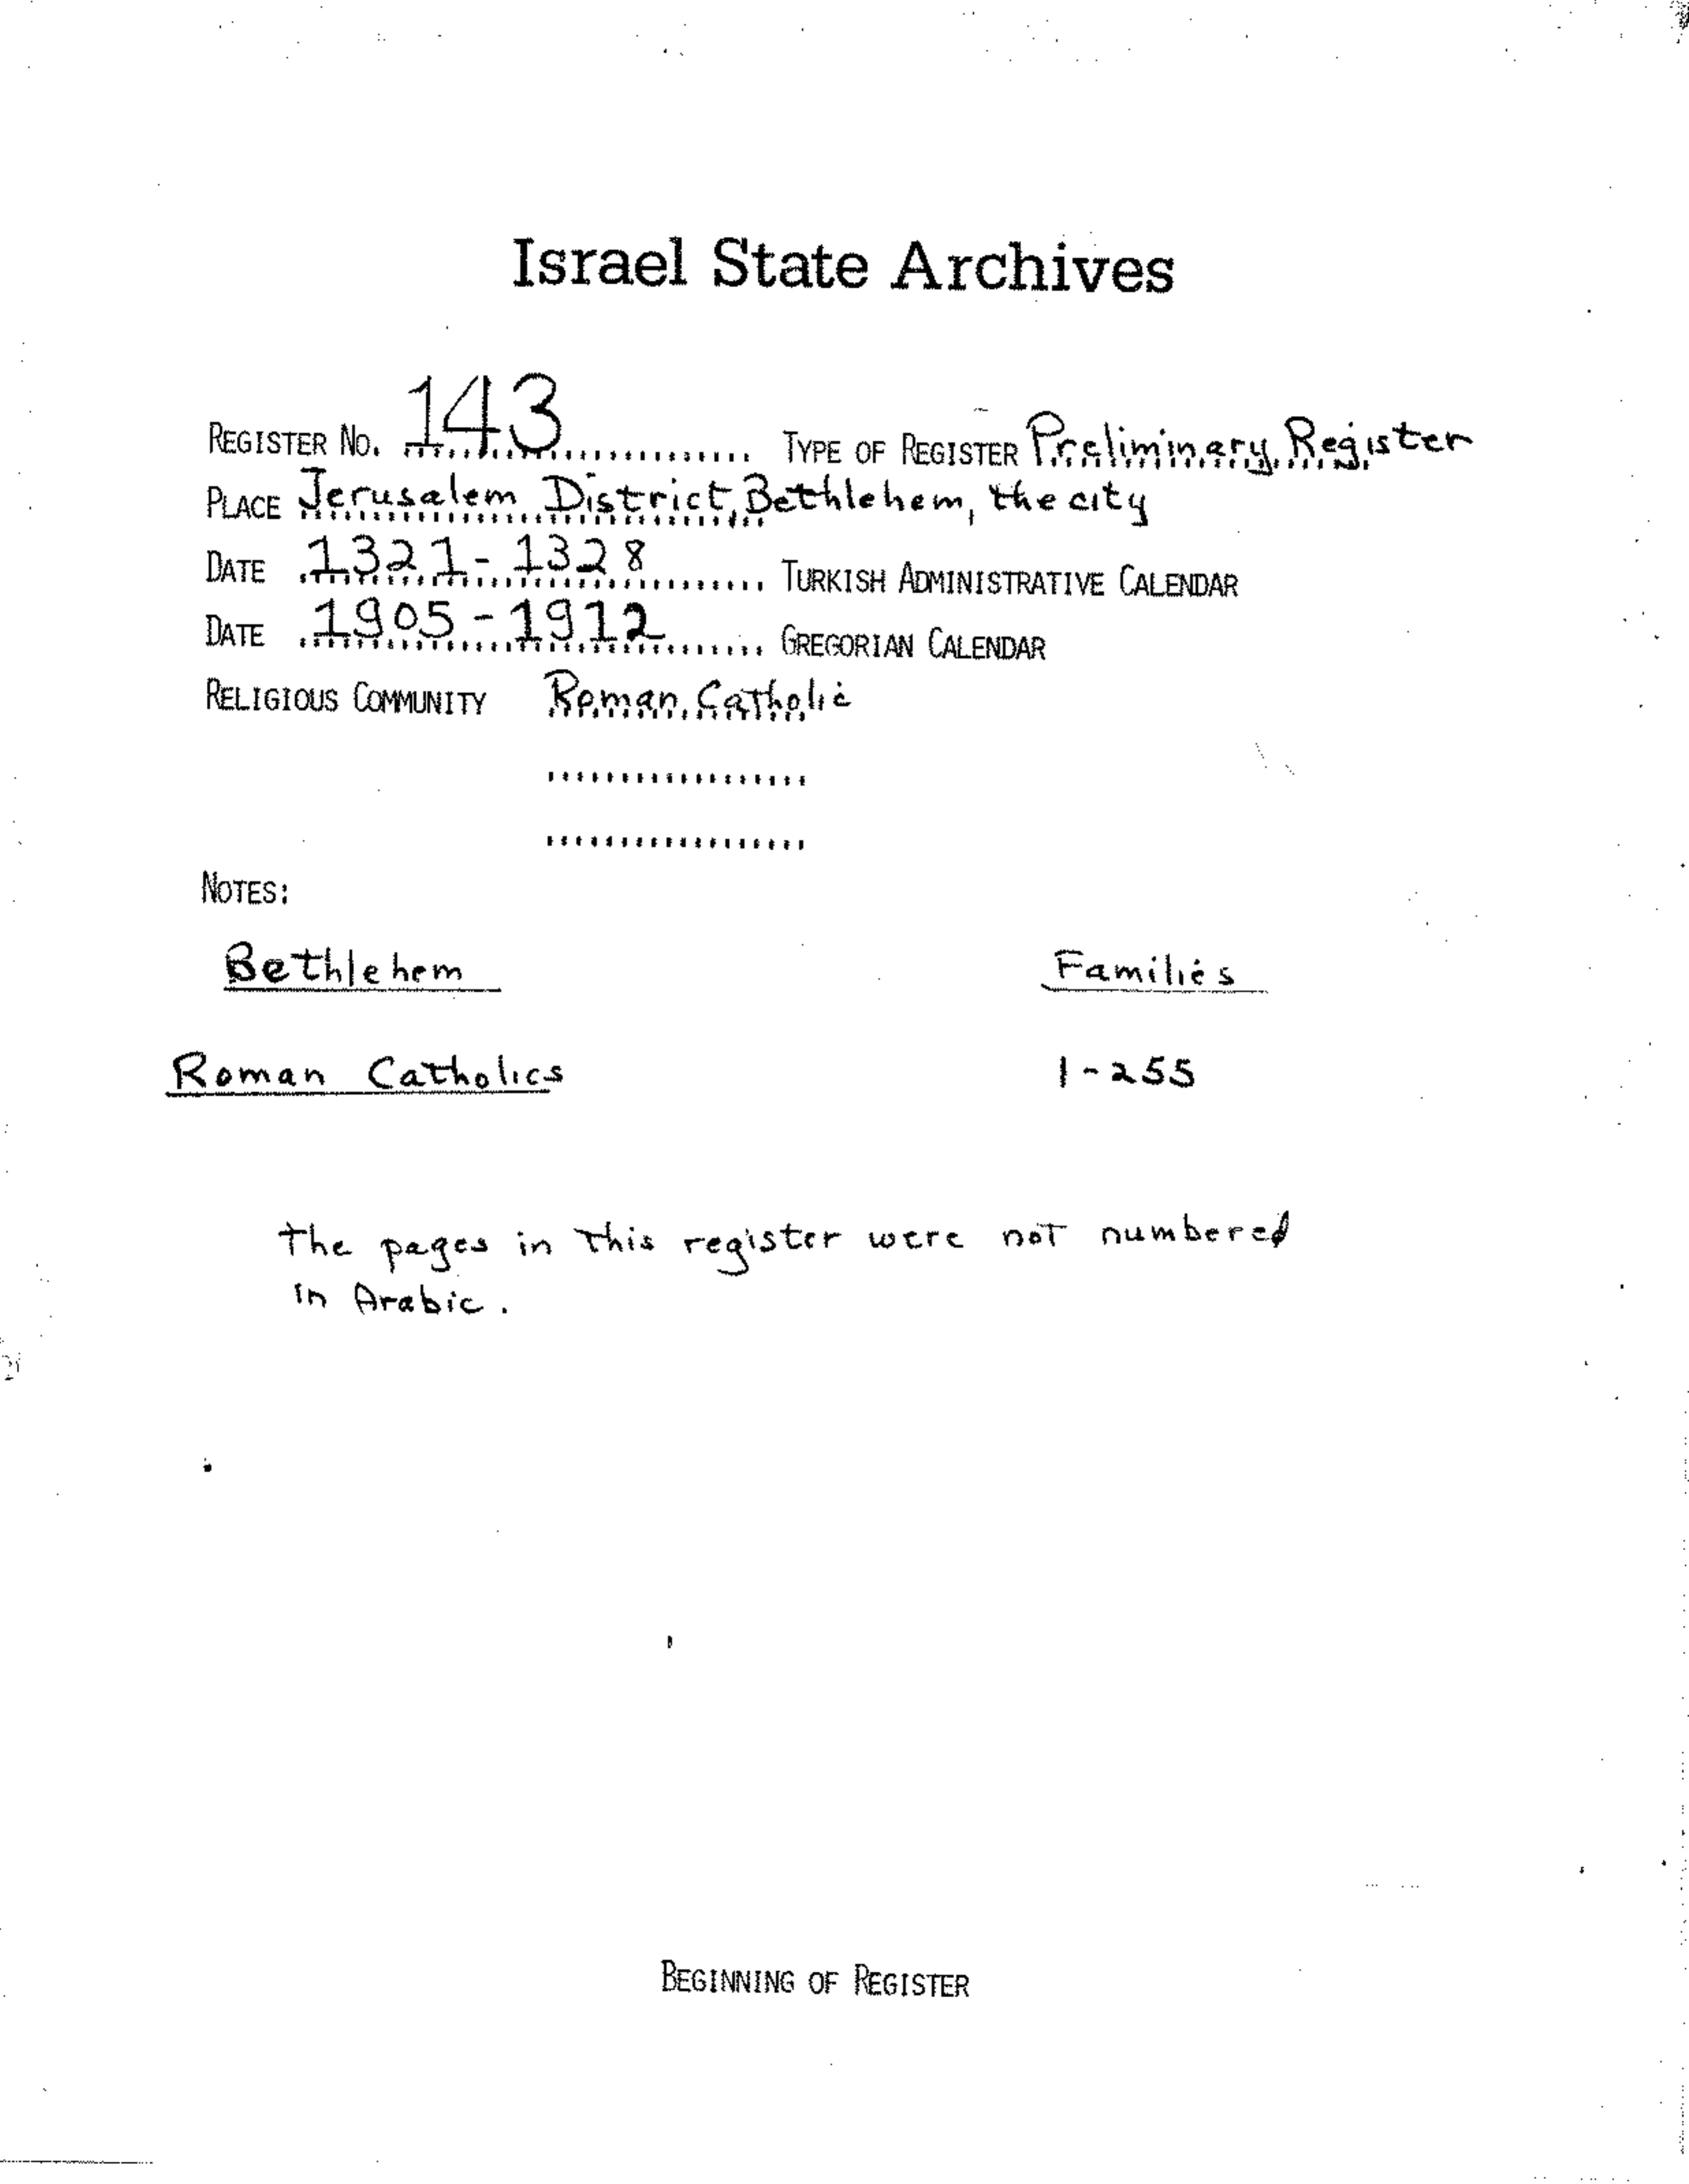 Israel State Archives
REGISTER NO. 143 TYPE OF REGISTER Preliminary Register
PLACE Jerusalem District, Bethlehem, the city
DATE 1321-1328 TURKISH ADMINISTRATIVE CALENDAR
DATE 1905-1912 GREGORIAN CALENDAR
RELIGIOUS COMMUNITY Roman Catholic
NOTES:
Bethlehem Families
Roman Catholics 1-255
The pages in this register were not numbered
in Arabic.
BEGINNING OF REGISTER